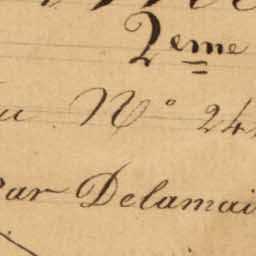 2eme
N° 24
Par Delamai